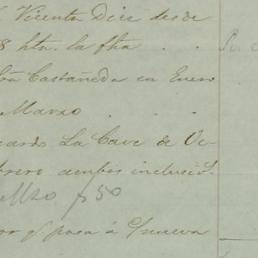 Vicenta Diez desde
8 hta. la fha
Castañeda en Enero
Marzo
La Cave de Oc-
brero ambos inclusive
Mzo $50
pasa á C/nueva